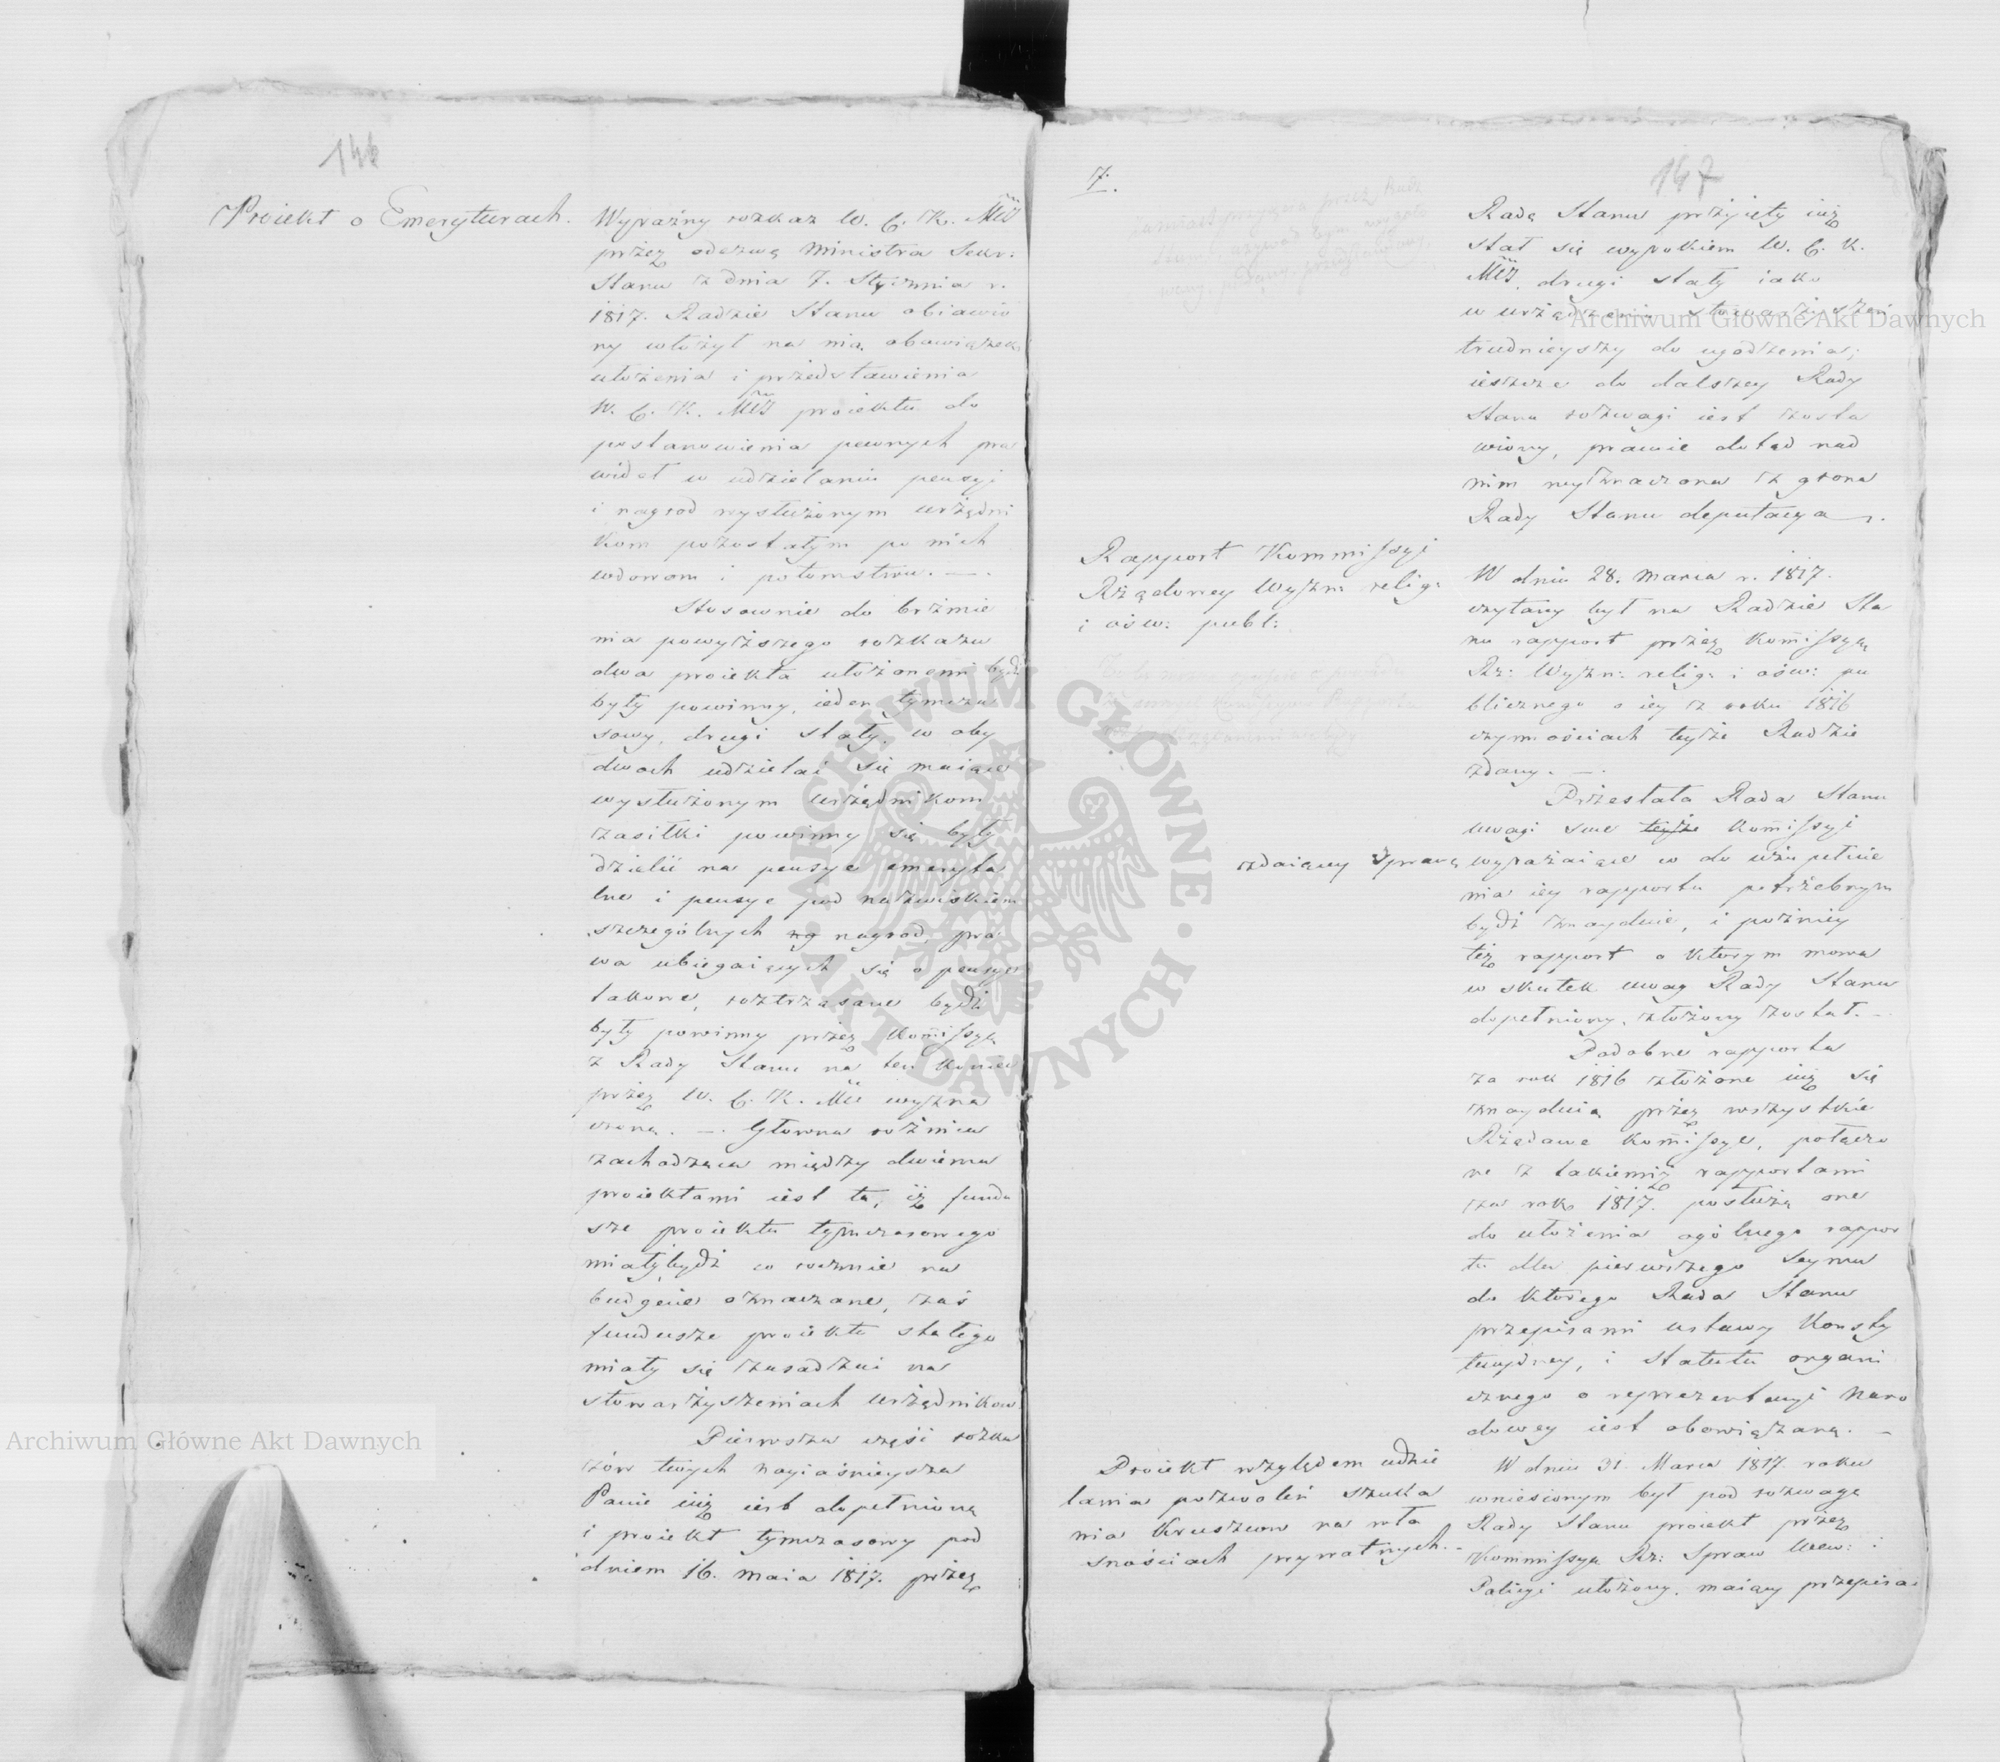 146
Proiekt o Emeryturach.
Wyraźny rozkaz W. C. K. Mći
przez odezwę Ministra Sekr:
Stanu z dnia 7. Stycznia r.
1817. Radzie Stanu obiawio
ny włożył na nią obowiązek
ułożenia i przedstawienia
W. C. K. Mći proiektu do
postanowienia pewnych pra
wideł w udzielaniu pensyi
i nagrod wysłużonym urzędni
kom pozostałym po nich
wdowom i potomstwu. —.
Stosownie do brzmie
nia powyższego rozkazu
dwa proiekta ułożonemi bydź
były powinny, ieden tymcza
sowy, drugi stały, w oby
dwoch udzielać się maiące
wysłużonym urzędnikom
zasiłki powinny się były
dzielić na pensye emeryta
lne i pensye pod nazwiskiem
szczególnych ng nagrod, pra
wa ubiegaiących się o pensye
takowe, roztrząsane bydź
były powinny przez Kommissyą
z Rady Stanu na ten koniec
przez W. C. K. Mć wyzna
czoną. —. Głowna rożnica
zachodząca między dwiema
proiektami iest ta, iż fundu
sze proiektu tymczasowego
miały bydź co rocznie na
budgecie oznaczane, zaś
fundusze proiektu stałego
miały się zasadzać na
stowarzyszeniach urzędnikow.
Pierwsza część rozka
zów twych Nayiaśnieyszy
Panie iuż iest dopełnioną
i proiekt tymczasowy pod
dniem 16. Maia 1817. przez
7.
147
Radę Stanu przyięty iuż
stał się wyrokiem W. C. K.
Mći, drugi stały iako
w urządzeniu stowarzyszeń
trudnieyszy do ugodzenia;
ieszcze do dalszey Rady
Stanu rozwagi iest zosta
wiony, pracuie dotąd nad
nim wyznaczona z grona
Rady Stanu deputacya.
Rapport Kommissyi
Rządowey Wyzn: relig:
i ośw: publ:
W dniu 28. Marca r. 1817.
czytany był na Radzie Sta
nu rapport przez Kommissyą
Rz: Wyzn: relig: i ośw: pu
blicznego o iey z roku 1816
czynnościach teyże Radzie
zdany. —.
Przesłała Rada Stanu
uwagi swe teyże Kommissyi
zdaiący sprawę
wyrażaiące co do uzupełnie
nia iey rapportu potrzebnym
bydź znayduie, i poźniey
też rapport o ktorym mowa
w skutek uwag Rady Stanu
dopełniony, złożony został. —
Podobne rapporta
za rok 1816 złożone iuż się
znayduią przez wszystkie
Rządowe Kommissye, połączo
ne z takiemiż rapportami
za rok 1817. posłużą one
do ułożenia ogólnego rappor
tu dla pierwszego Seymu
do ktorego Rada Stanu
przepisami ustawy Konsty
tucyiney, i Statutu organi
cznego o reprezentacyi Naro
dowey iest obowiązaną. —
Proiekt względem udzie
lania pozwoleń szuka
nia Kruszcow na wła
snościach prywatnych. —
W dniu 31. Marca 1817. roku
wniesionym był pod rozwagę
Rady Stanu proiekt przez
Kommissyą Rz: Spraw Wew: i
Policyi ułożony, maiący przepisa
Archiwum Główne Akt Dawnych
Archiwum Główne Akt Dawnych
ARCHIWUM GŁÓWNE · AKT DAWNYCH ·